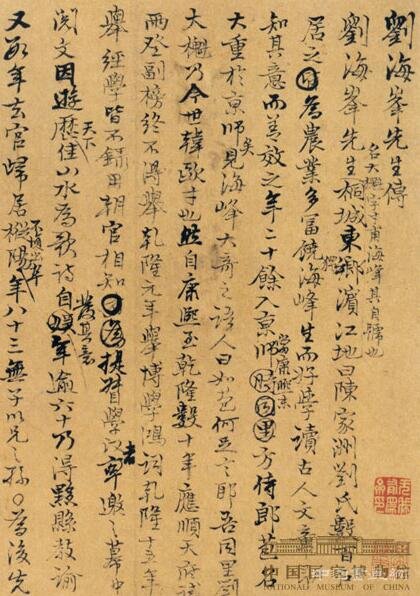 劉海峯先生傳
劉海峯先生名大櫆字才甫海峰其自號也桐城東鄉濱江地曰陳家洲劉氏數百
居之為農業多富饒海峰生而好學讀古人文章
知其意而善效之年二十餘入京師當康熙末方侍郎苞名
大重於京師矣見海峰大奇之語人曰如苞何足言耶吾同里劉
大櫆乃今世韓歐才也然自康熙至乾隆數十年應順天府試
兩登副榜終不得舉乾隆元年舉博學鴻詞乾隆十五年
舉經學皆不錄用朝官相知為提督學政者率邀之幕中
閱文因遊歷天下佳山水為歌詩自發其意年逾六十乃得黟縣教諭
又數年去官歸居樅陽不復出卒年八十三無子以兄之孫為後先
NATIONAL MUSEUM OF CHINA